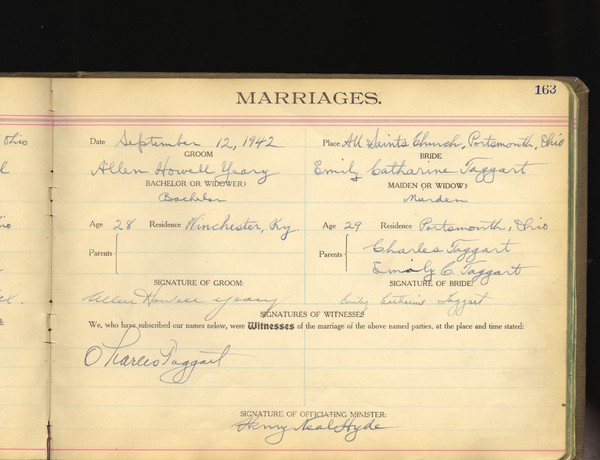 163
MARRIAGES.
Ohio
Date September 12, 1942 Place All Saints Church, Portsmouth, Ohio
GROOM BRIDE
Allen Howell Yeary Emily Catharine Taggart
BACHELOR OR WIDOWER? MAIDEN OR WIDOW?
Bachelor Maiden
Age 28 Residence Winchester, Ky. Age 29 Residence Portsmouth, Ohio
Parents Parents Charles Taggart
Emily C Taggart
SIGNATURE OF GROOM: SIGNATURE OF BRIDE
Allen Howell Yeary Emily Catharine Taggart
SIGNATURES OF WITNESSES
We, who have subscribed our names below, were Witnesses of the marriage of the above named parties, at the place and time stated:
Charles Taggart
SIGNATURE OF OFFICIATING MINISTER:
Henry Neal Hyde